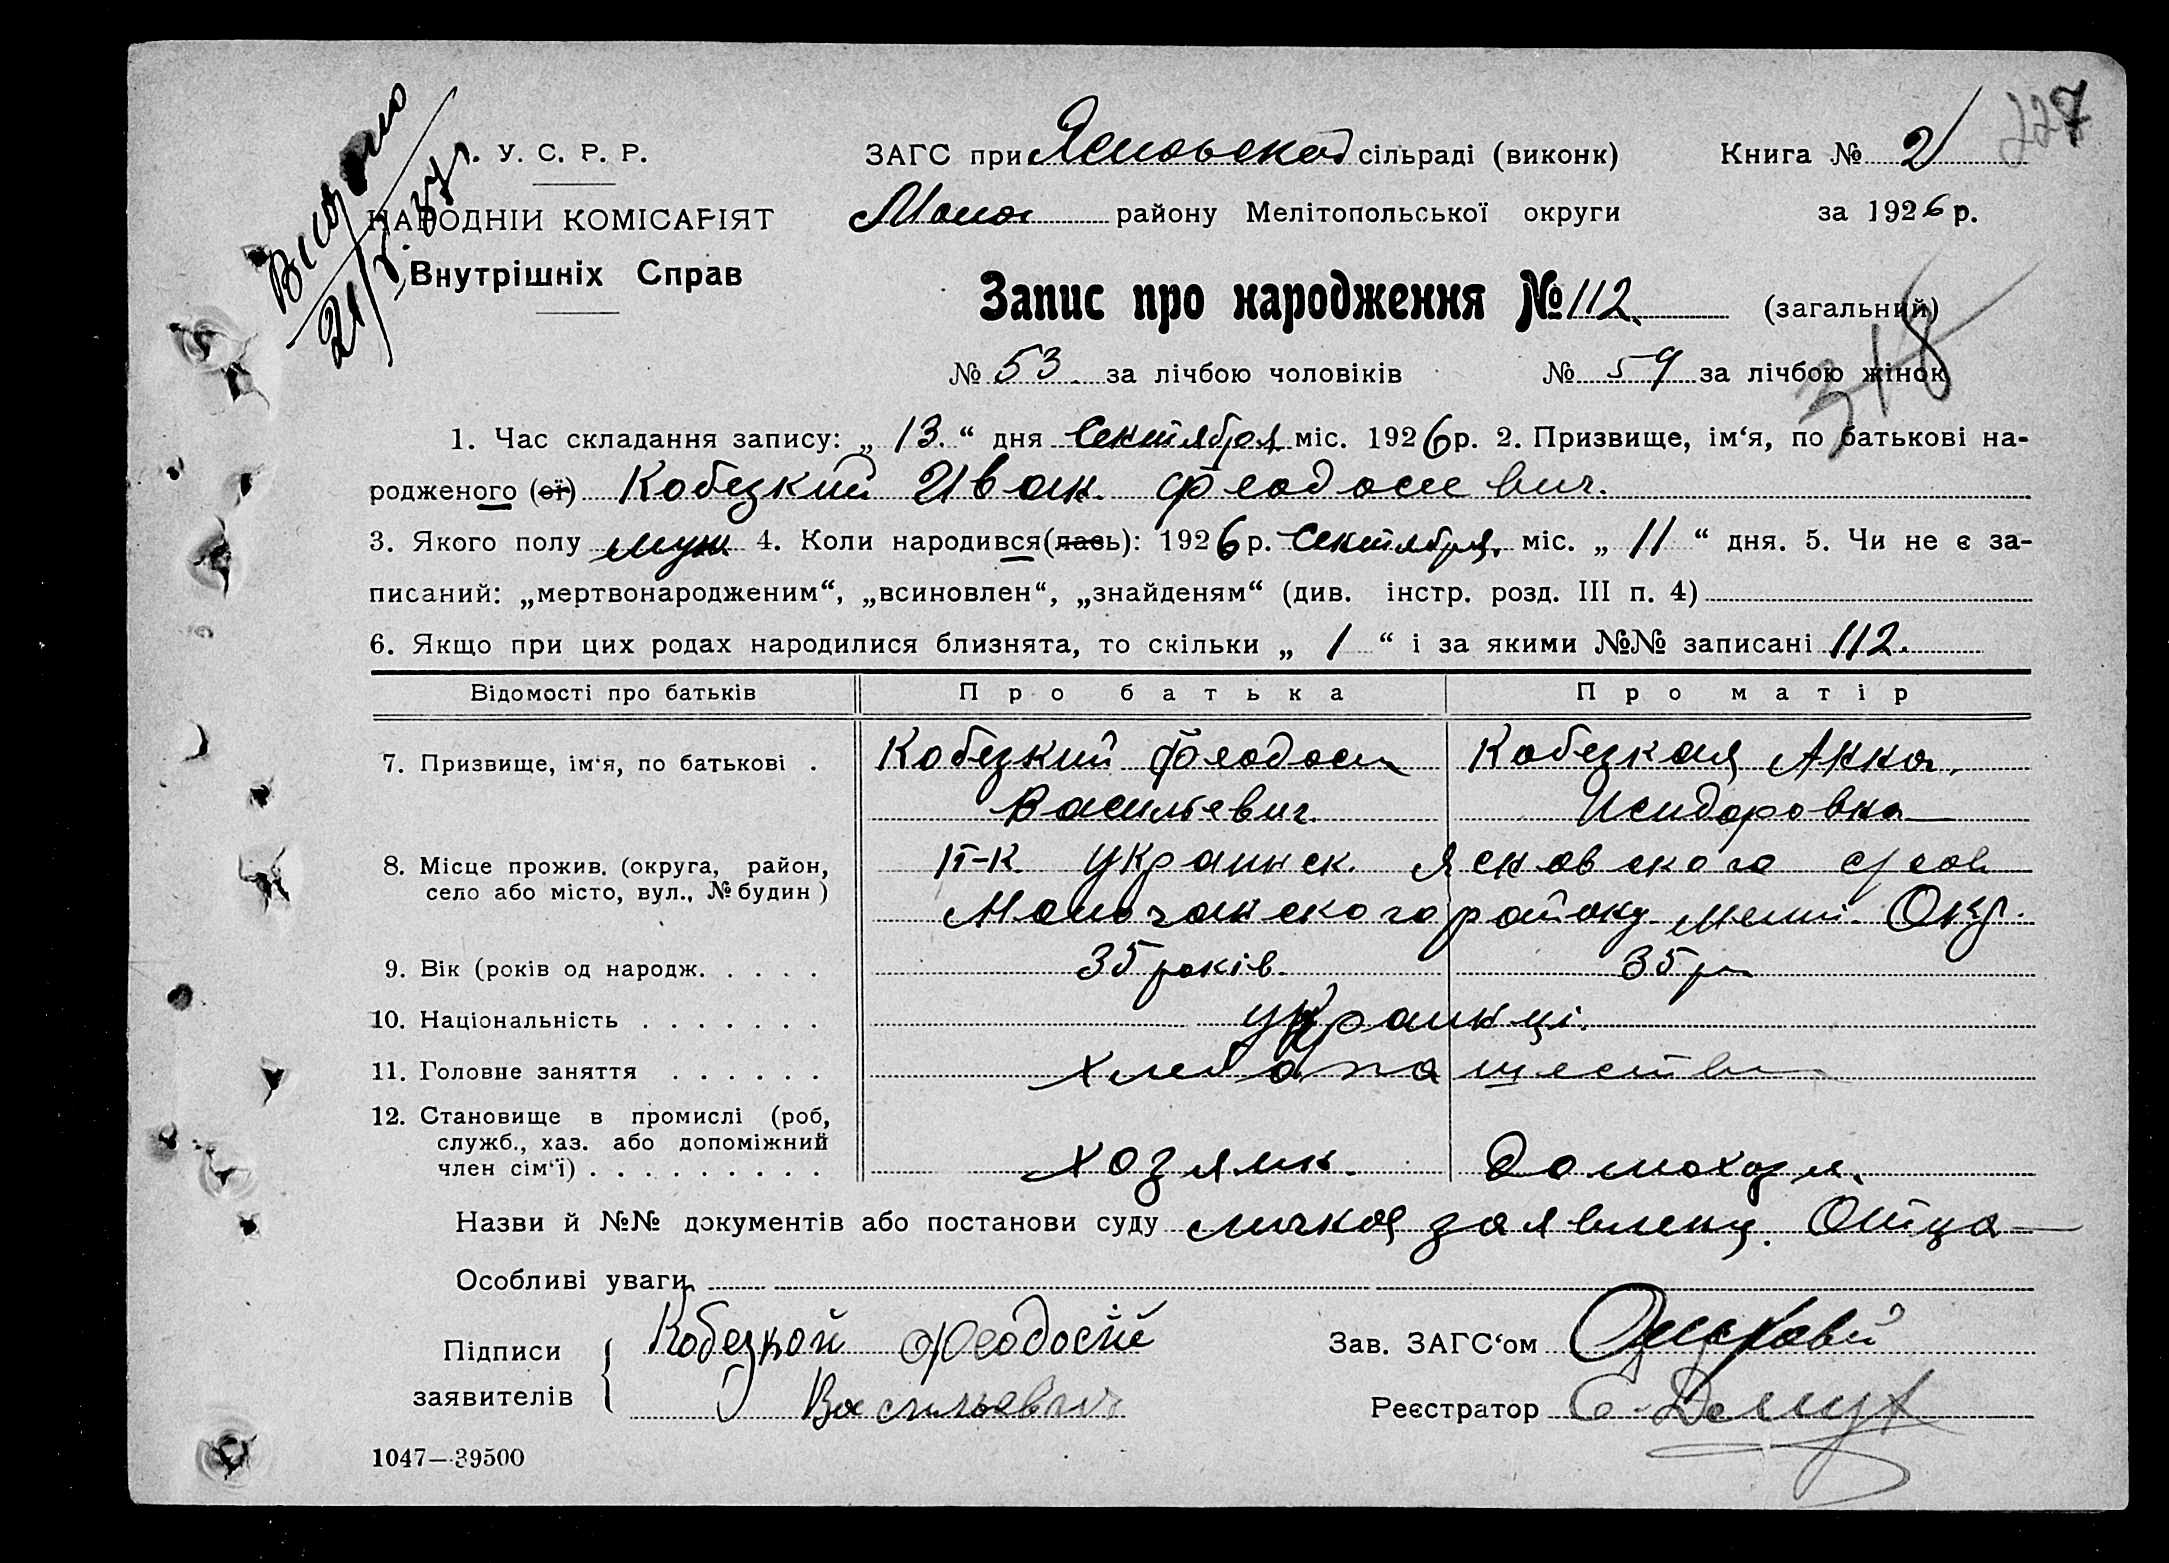 Видано
21/V. 37г.
227
У. С. Р. Р.
НАРОДНІЙ КОМІСАРІЯТ
Внутрішніх Справ
ЗАГС при Ясновской сільраді (виконк) Книга № 2
Молоч району Мелітопольської округи за 1926 р.
Запис про народження № 112. (загальний)
318
№ 53 за лічбою чоловіків № 59 за лічбою жінок
1. Час складання запису: „ 13 “ дня Сентября міс. 1926 р. 2. Призвище, ім‘я, по батькові на-
родженого (ої) Кобезкий Иван Феодосиевич.
3. Якого полу муж 4. Коли народився(лась): 1926 р. Сентября міс. „ 11 “ дня. 5. Чи не є за-
писаний: „мертвонародженим“, „всиновлен“, „знайденям“ (див. інстр. розд. III п. 4)
6. Якщо при цих родах народилися близнята, то скільки „ 1 “ і за якими №№ записані 112.
Відомості про батьків Про батька Про матір
7. Призвище, ім‘я, по батькові . Кобезкий Феодоси Кобезкая Анна
Васильевич. Исидоровна
8. Місце прожив. (округа, район, п-к. Украинск. Ясновского
село або місто, вул., № будин) Молочанского району Мелит. Окр.
9. Вік (років од народж. . . . . 35 років. 35 р
10. Національність . . . . . . . українці.
11. Головне заняття . . . . . . Хлебопашество
12. Становище в промислі (роб,
служб., хаз. або допоміжний
член сім‘ї) . . . . . . . . . хозяин. Домохоз
Назви й №№ документів або постанови суду личноя заявлену. Отца
Особливі уваги
Підписи заявителів Кобезкой Феодосій
Васильевич
Зав. ЗАГС‘ом
Реєстратор
1047—39500